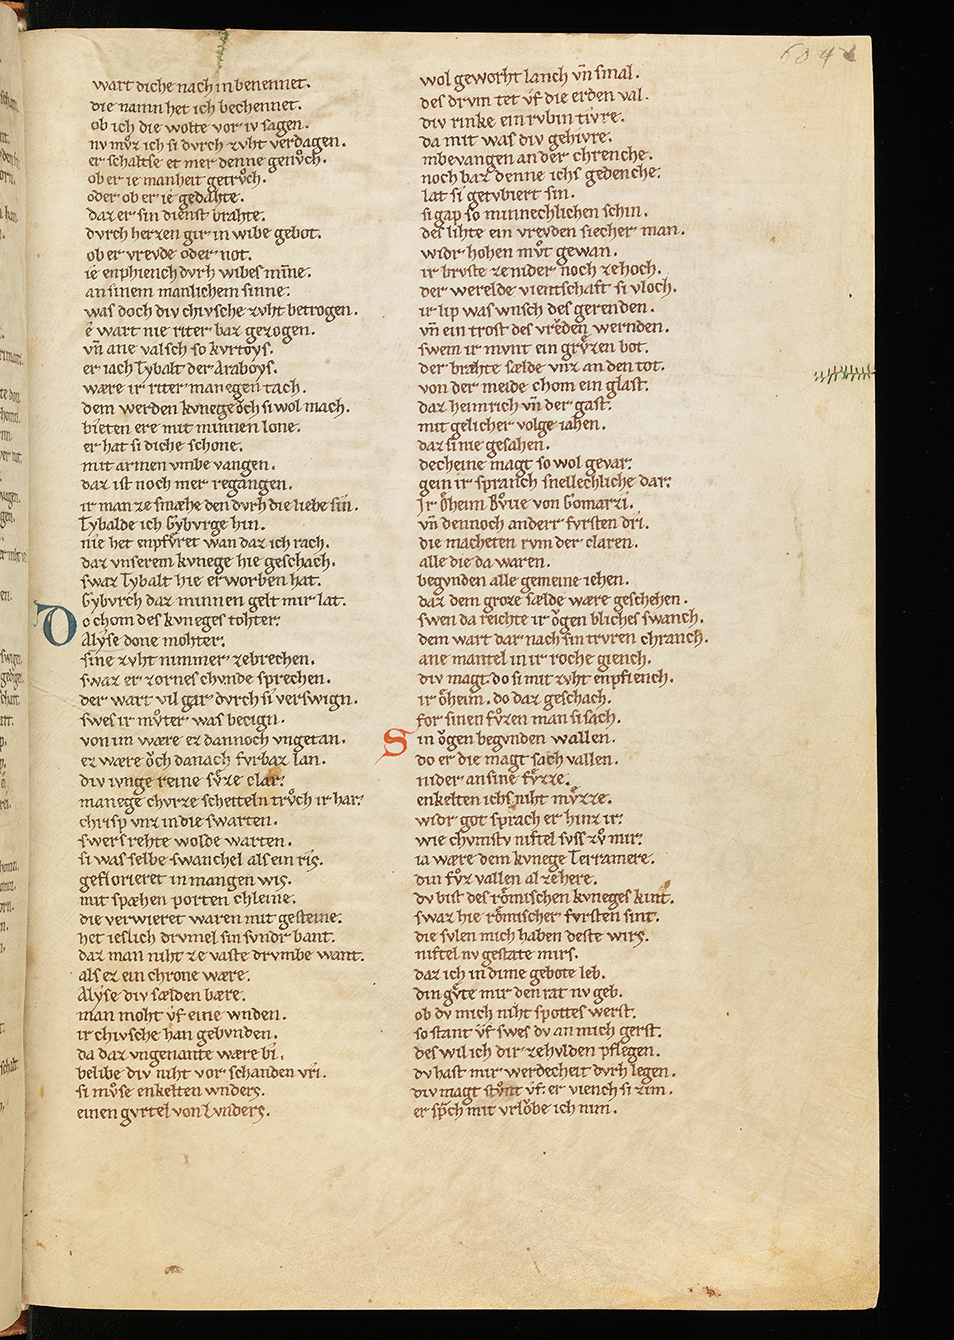 604
wart diche nach in benennet.
die namn het ich bechennet.
ob ich die wolte vor iv sagen.
nv mvͦz ich si dvrch zvht verdagen.
er schaltse et mer denne genvͦch.
ob er ie manheit getrvͦch.
oder ob er ie gedahte.
daz er sin dienst brahte.
dvrch herzen gir in wibe gebot.
ob er vrevde oder not.
ie enphiench dvrh wibes mīne.
an sinem manlichem sinne.
was doch div chivsche zvht betrogen.
é wart nie riter baz gezogen.
vn̄ ane valsch so kvrtoys.
er iach Tybalt der Araboys.
wære ir riter manegen tach.
dem werden kvnege oͮch si wol mach.
bieten ere mit minnen lone.
er hat si diche schone.
mit armen vmbe vangen.
daz ist noch mer regangen.
ir man ze smæhe den dvrh die liebe sin.
Tybalde ich Gybvrge hin.
nie het enpfvͤret wan daz ich rach.
daz vnserem kvnege hie geschach.
swaz Tybalt hie erworben hat.
Gybvrch daz minnen gelt mir lat.
Do chom des kvneges tohter.
Alyse done mohter.
sine zvht nimmer zebrechen.
swaz er zornes chvnde sprechen.
der wart vil gar dvrch si verswign.
swes ir mvͦter was bezign.
von im wære ez dannoch vngetan.
ez wære oͮch danach fvrbaz lan.
div ivnge reine svͤze clar.
manege chvrze scheiteln trvͦch ir har.
chrisp vnz in die swarten.
swers rehte wolde warten.
si was selbe swanchel als ein ris.
geflorieret in mangen wis.
mit spæhen porten chleine.
die verwieret waren mit gesteine.
het ieslich drvmel sin svndr bant.
daz man niht ze vaste drvmbe want.
als ez ein chrone wære.
Alyse div sælden bære.
man moht vf eine wnden.
ir chivsche han gebvnden.
da daz vngenante wære bi.
belibe div niht vor schanden vri.
si mvͦse enkelten wnders.
einen gvrtel von Lvnders.
wol geworht lanch vn̄ smal.
des drvm tet vf die erden val.
div rinke ein rvbin tivre.
da mit was div gehivre.
mbevangen an der chrenche.
noch baz denne ichs gedenche.
lat si getvbiert sin.
si gap so minnechlichen schin.
des lihte ein vrevden siecher man.
widr hohen mvͦt gewan.
ir brvste ze nider noch ze hoch.
der werelde vientschaft si vloch.
ir lip was wnsch des gerenden.
vn̄ ein trost des vrevden wernden.
swem ir mvnt ein grvͤzen bot.
der brahte sælde vnz an den tot.
von der meide chom ein glast.
daz heimrich vn̄ der gast.
mit gelicher volge iahen.
daz si nie gesahen.
decheine magt so wol gevar.
gein ir spranch snellechliche dar.
Jr oͤheim Bvͦve von Gomarzi.
vn̄ dennoch anderr fvrsten dri.
die macheten rvm der claren.
alle die da waren.
begvnden alle gemeine iehen.
daz dem groze sælde wære geschehen.
swen da reichte ir oͮgen bliches swanch.
dem wart dar nach sin trvren chranch.
ane mantel in ir roche giench.
div magt. do si mit zvht enpfiench.
ir oͤheim. do daz geschach.
for sinen fvͤzen man si sach.
Sin oͮgen begvnden wallen.
do er die magt sach vallen.
nider an sine fvͤzze.
enkelten ichs niht mvͤzze.
widr got sprach er hinz ir.
wie chvmstv niftel svss zvͦ mir.
ia wære dem kvnege Terramere.
din fvͦz vallen al ze here.
dv bist des roͤmischen kvneges kint.
swaz hie roͤmischer fvrsten sint.
die svlen mich haben deste wirs.
niftel nv gestate mirs.
daz ich in dime gebote leb.
din gvͤte mir den rat nv geb.
ob dv mich niht spottes werst.
so stant vf swes dv an mich gerst.
des wil ich dir ze hvlden pflegen.
dv hast mir werdecheit dvrh legen.
div magt stvͦnt vf. er viench si zim.
er sp̄ch mit vrloͮbe ich nim.